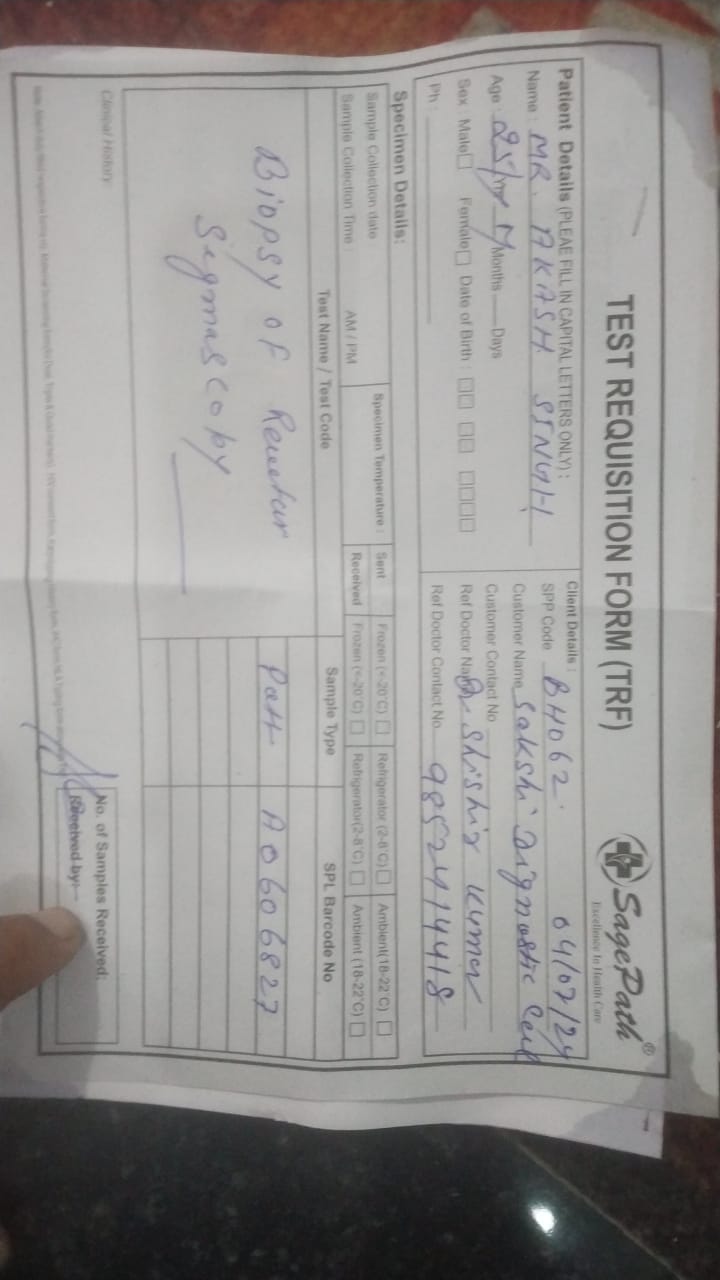 TEST REQUISITION FORM (TRF)
SagePath®
Excellence In Health Care
Patient Details (PLEAE FILL IN CAPITAL LETTERS ONLY) :
Name : MR. AKASH SINGH
Age : 25/Yrs M Months Days
Sex : Male Female Date of Birth :
Ph :
Client Details : 04/07/24
SPP Code BH062
Customer Name Sakshi Dignostic
Customer Contact No
Ref Doctor Name Dr Shishir Kumar
Ref Doctor Contact No 9852414418
Specimen Details:
Sample Collection date
Sample Collection Time : AM / PM
Specimen Temperature :
Sent Frozen (<-20°C) Refrigerator (2-8°C) Ambient(18-22°C)
Received Frozen (<-20°C) Refrigerator(2-8°C) Ambient (18-22°C)
Test Name / Test Code Sample Type SPL Barcode No
Biopsy of A0606827
Sigmascopy
Clinical History
No. of Samples Received:
Received by: